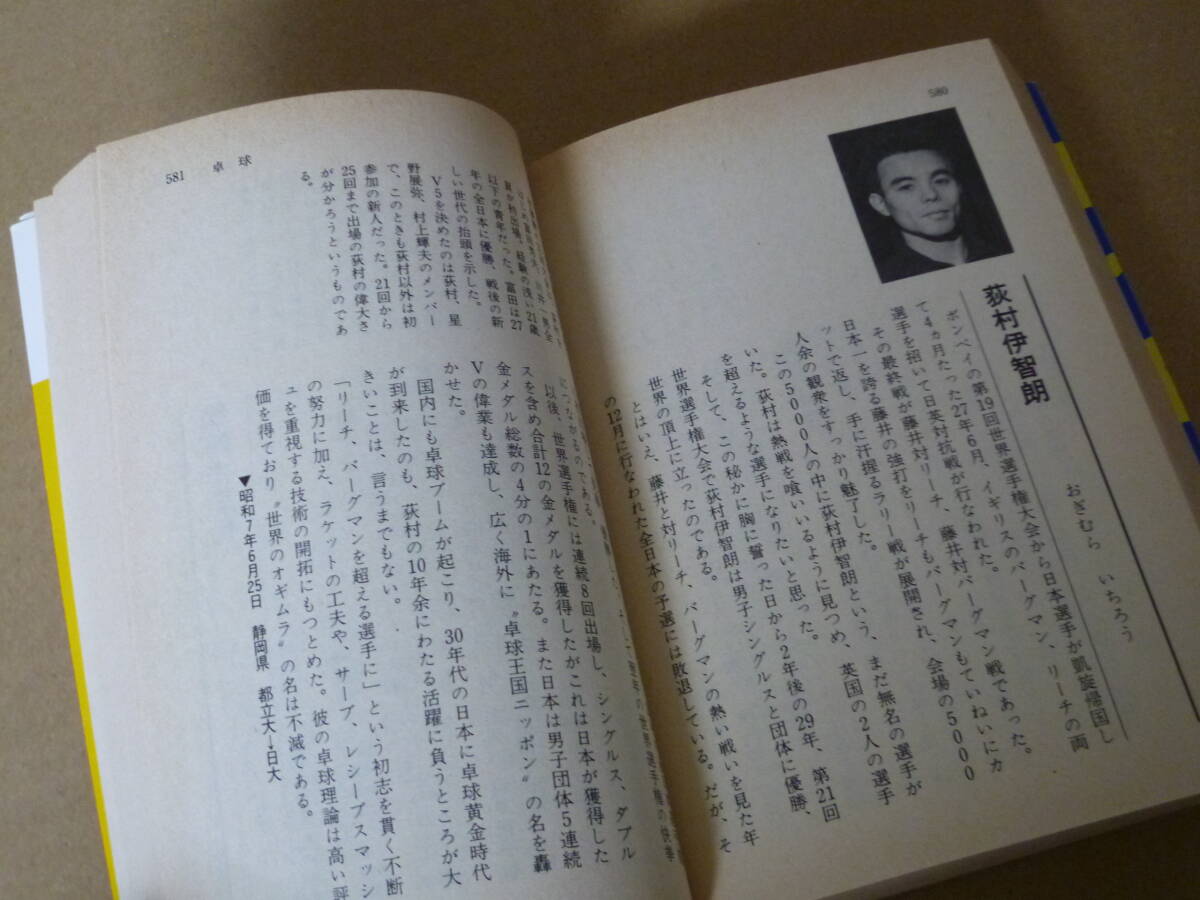 580
荻村伊智朗
おぎむら いちろう
ボンベイの第19回世界選手権大会から日本選手が凱旋帰国し
て4ヵ月たった27年6月、イギリスのバーグマン、リーチの両
選手を招いて日英対抗戦が行なわれた。
その最終戦が藤井対リーチ、藤井対バーグマン戦であった。
日本一を誇る藤井の強打をリーチもバーグマンもていねいにカ
ットで返し、手に汗握るラリー戦が展開され、会場の5000
人余の観衆をすっかり魅了した。
この5000人の中に荻村伊智朗という、まだ無名の選手が
いた。荻村は熱戦を喰いいるように見つめ、英国の2人の選手
を超えるような選手になりたいと思った。
そして、この秘かに胸に誓った日から2年後の29年、第21回
世界選手権大会で荻村伊智朗は男子シングルスと団体に優勝、
世界の頂上に立ったのである。
とはいえ、藤井と対リーチ、バーグマンの熱い戦いを見た年
の12月に行なわれた全日本の予選には敗退している。だが、そ
581 卓球
につながるのである。
以後、世界選手権には連続8回出場し、シングルス、ダブル
スを含め合計12の金メダルを獲得したがこれは日本が獲得した
金メダル総数の4分の1にあたる。また日本は男子団体5連続
Vの偉業も達成し、広く海外に〝卓球王国ニッポン〟の名を轟
かせた。
国内にも卓球ブームが起こり、30年代の日本に卓球黄金時代
が到来したのも、荻村の10年余にわたる活躍に負うところが大
きいことは、言うまでもない。
「リーチ、バーグマンを超える選手に」という初志を貫く不断
の努力に加え、ラケットの工夫や、サーブ、レシーブスマッシ
ュを重視する技術の開拓にもつとめた。彼の卓球理論は高い評
価を得ており〝世界のオギムラ〟の名は不滅である。
▼昭和7年6月25日 静岡県 都立大→日大
以下の青年だった。富田は27
年の全日本に優勝、戦後の新
しい世代の抬頭を示した。
V5を決めたのは荻村、星
野展弥、村上輝夫のメンバー
で、このときも荻村以外は初
参加の新人だった。21回から
25回まで出場の荻村の偉大さ
が分かろうというものであ
る。